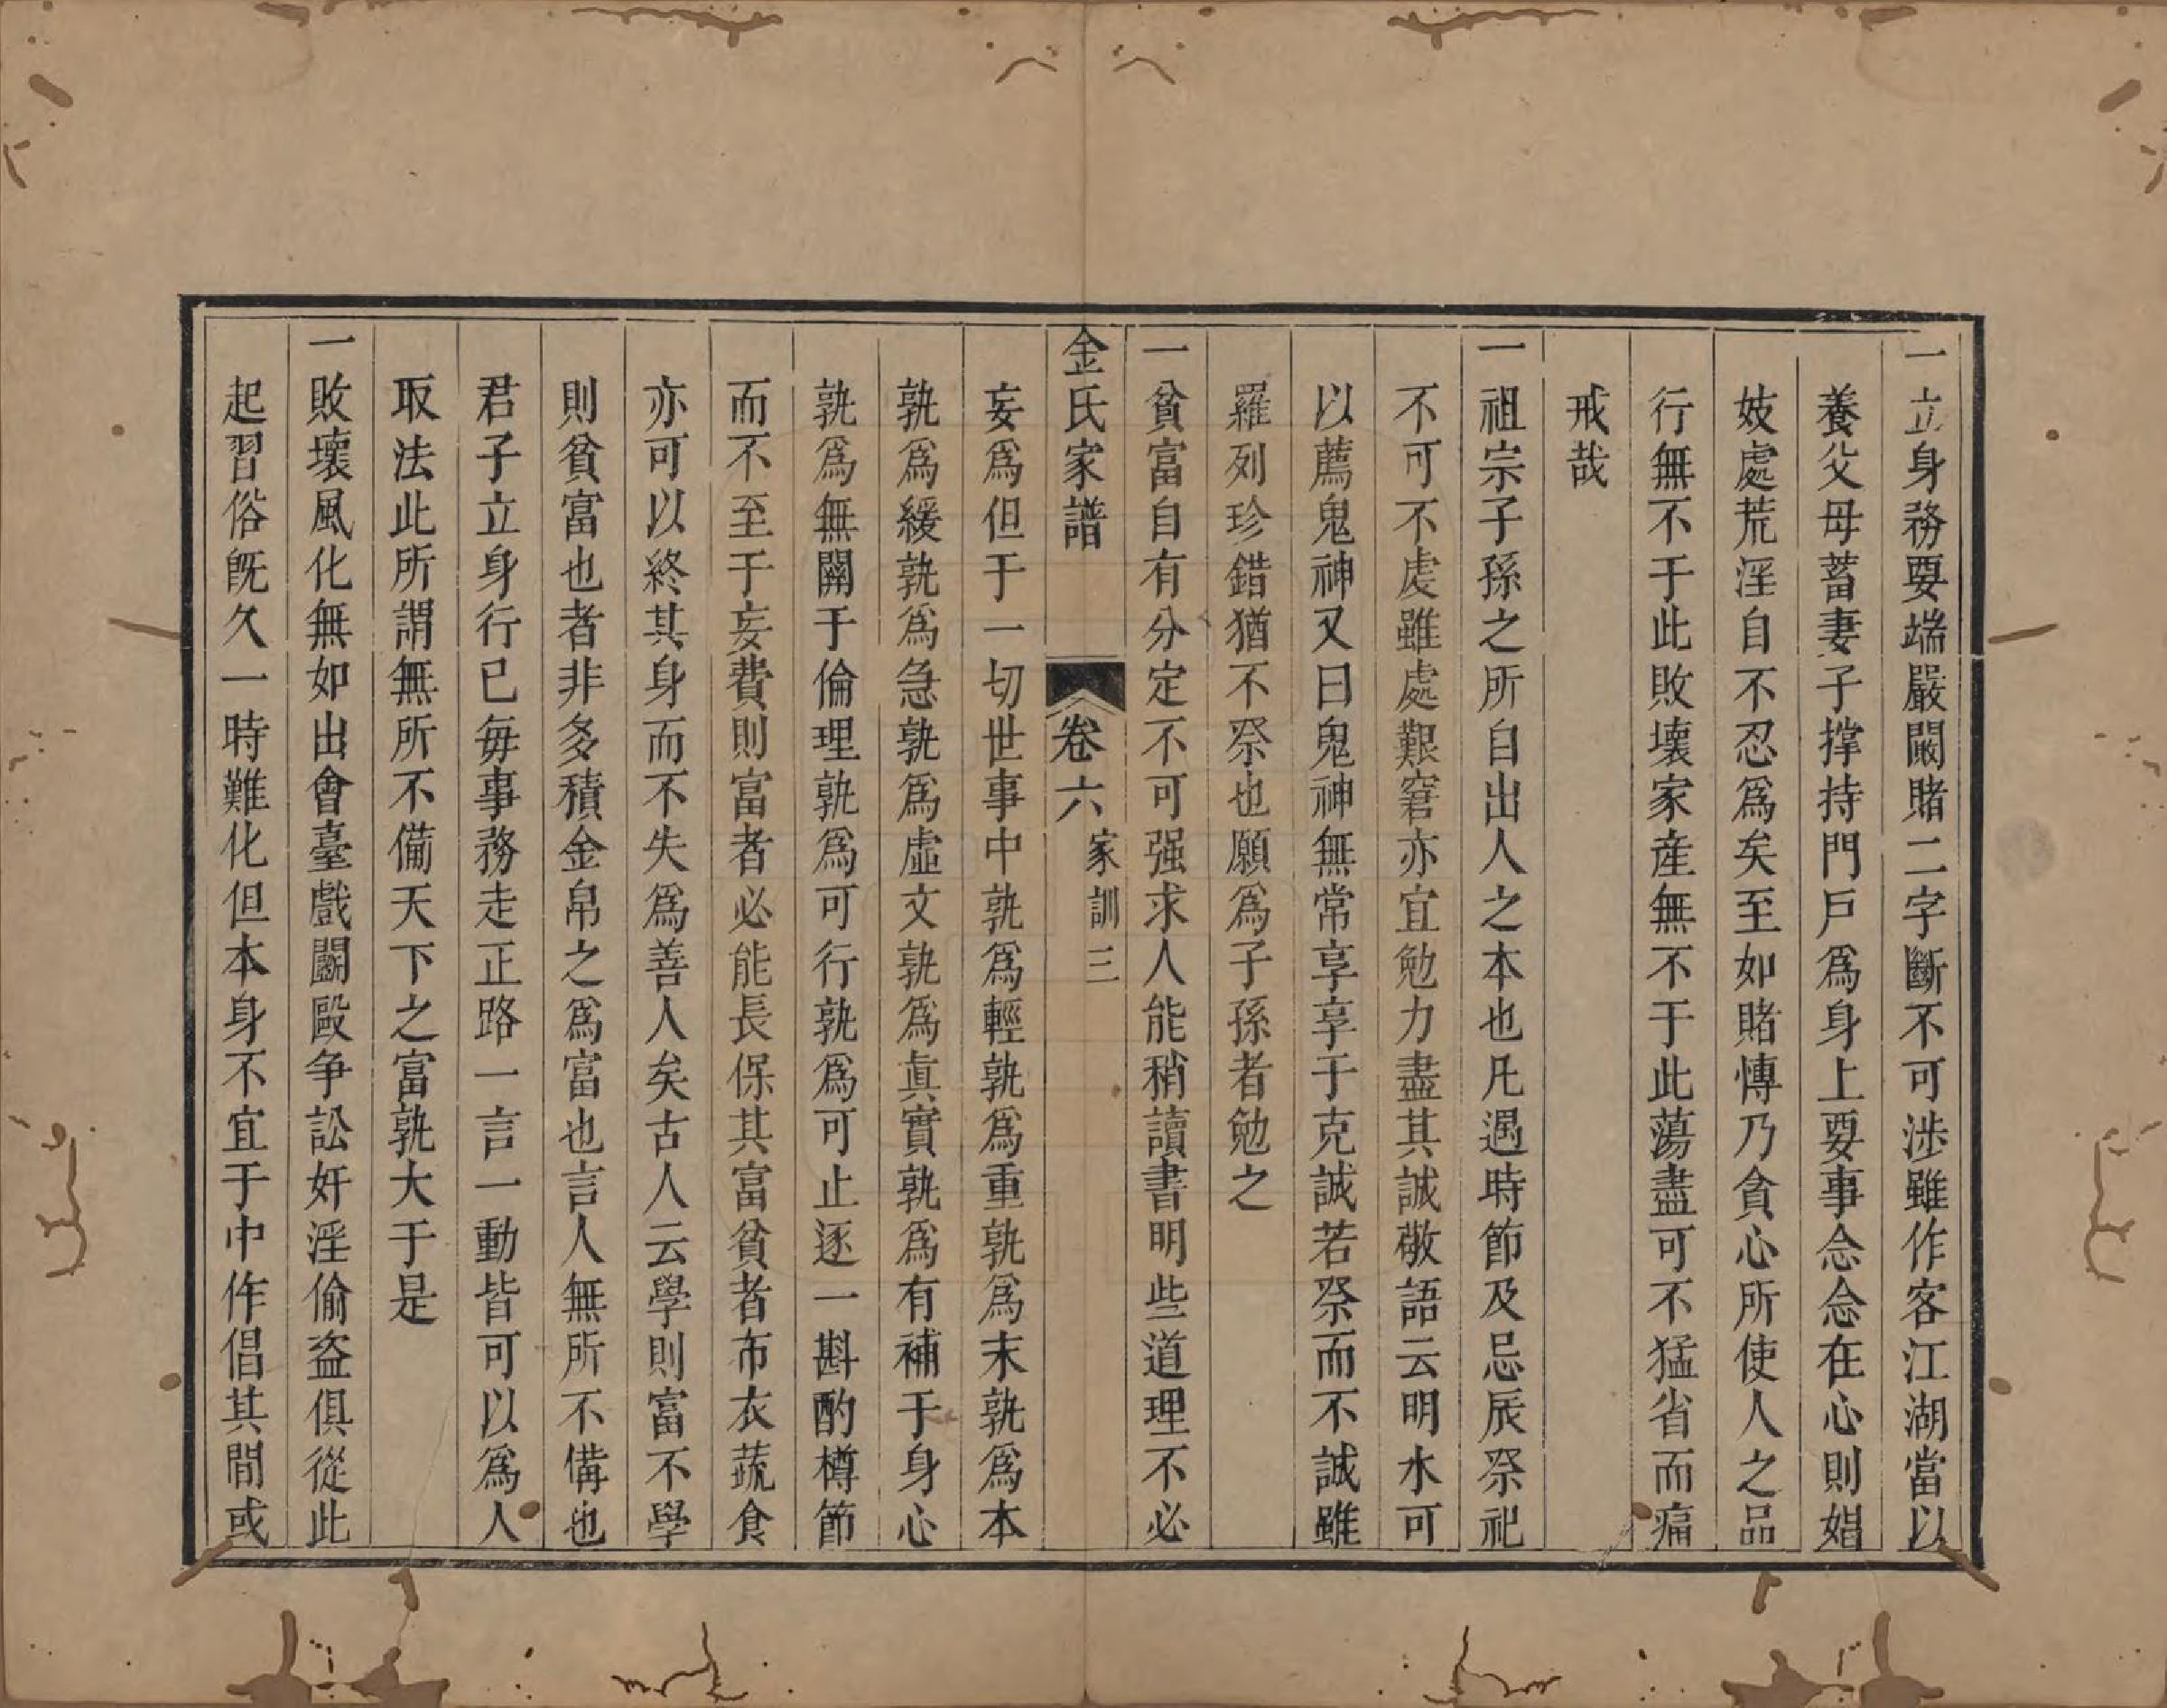 一立身務要端嚴闞賭二字斷不可涉雖作客江湖當以
養父母蓄妻子撑持門戶爲身上要事念念在心則娼
妓處荒淫自不忍爲矣至如賭愽乃貪心所使人之品
行無不于此敗壞家産無不于此蕩盡可不猛省而痛
戒哉
一祖宗子孫之所自出人之本也凡遇時節及忌辰祭祀
不可不虔雖處艱窘亦宜勉力盡其誠敬語云明水可
以薦鬼神又曰鬼神無常享享于克誠若祭而不誠雖
羅列珍錯猶不祭也願爲子孫者勉之
一貧富自有分定不可强求人能稍讀書明些道理不必
金氏家譜 卷六 家訓 三
妄爲但于一切世事中孰爲輕孰爲重孰爲末孰爲本
孰爲緩孰爲急孰爲虛文孰爲眞實孰爲有補于身心
孰爲無關于倫理孰爲可行孰爲可止逐一斟酌樽節
而不至于妄費則富者必能長保其富貧者布衣蔬食
亦可以終其身而不失爲善人矣古人云學則富不學
則貧富也者非多積金帛之爲富也言人無所不備也
君子立身行已每事務走正路一言一動皆可以爲人
取法此所謂無所不備天下之富孰大于是
一敗壞風化無如出會臺戲鬭毆争訟奸淫偷盗俱從此
起習俗旣久一時難化但本身不宜于中作倡其間或